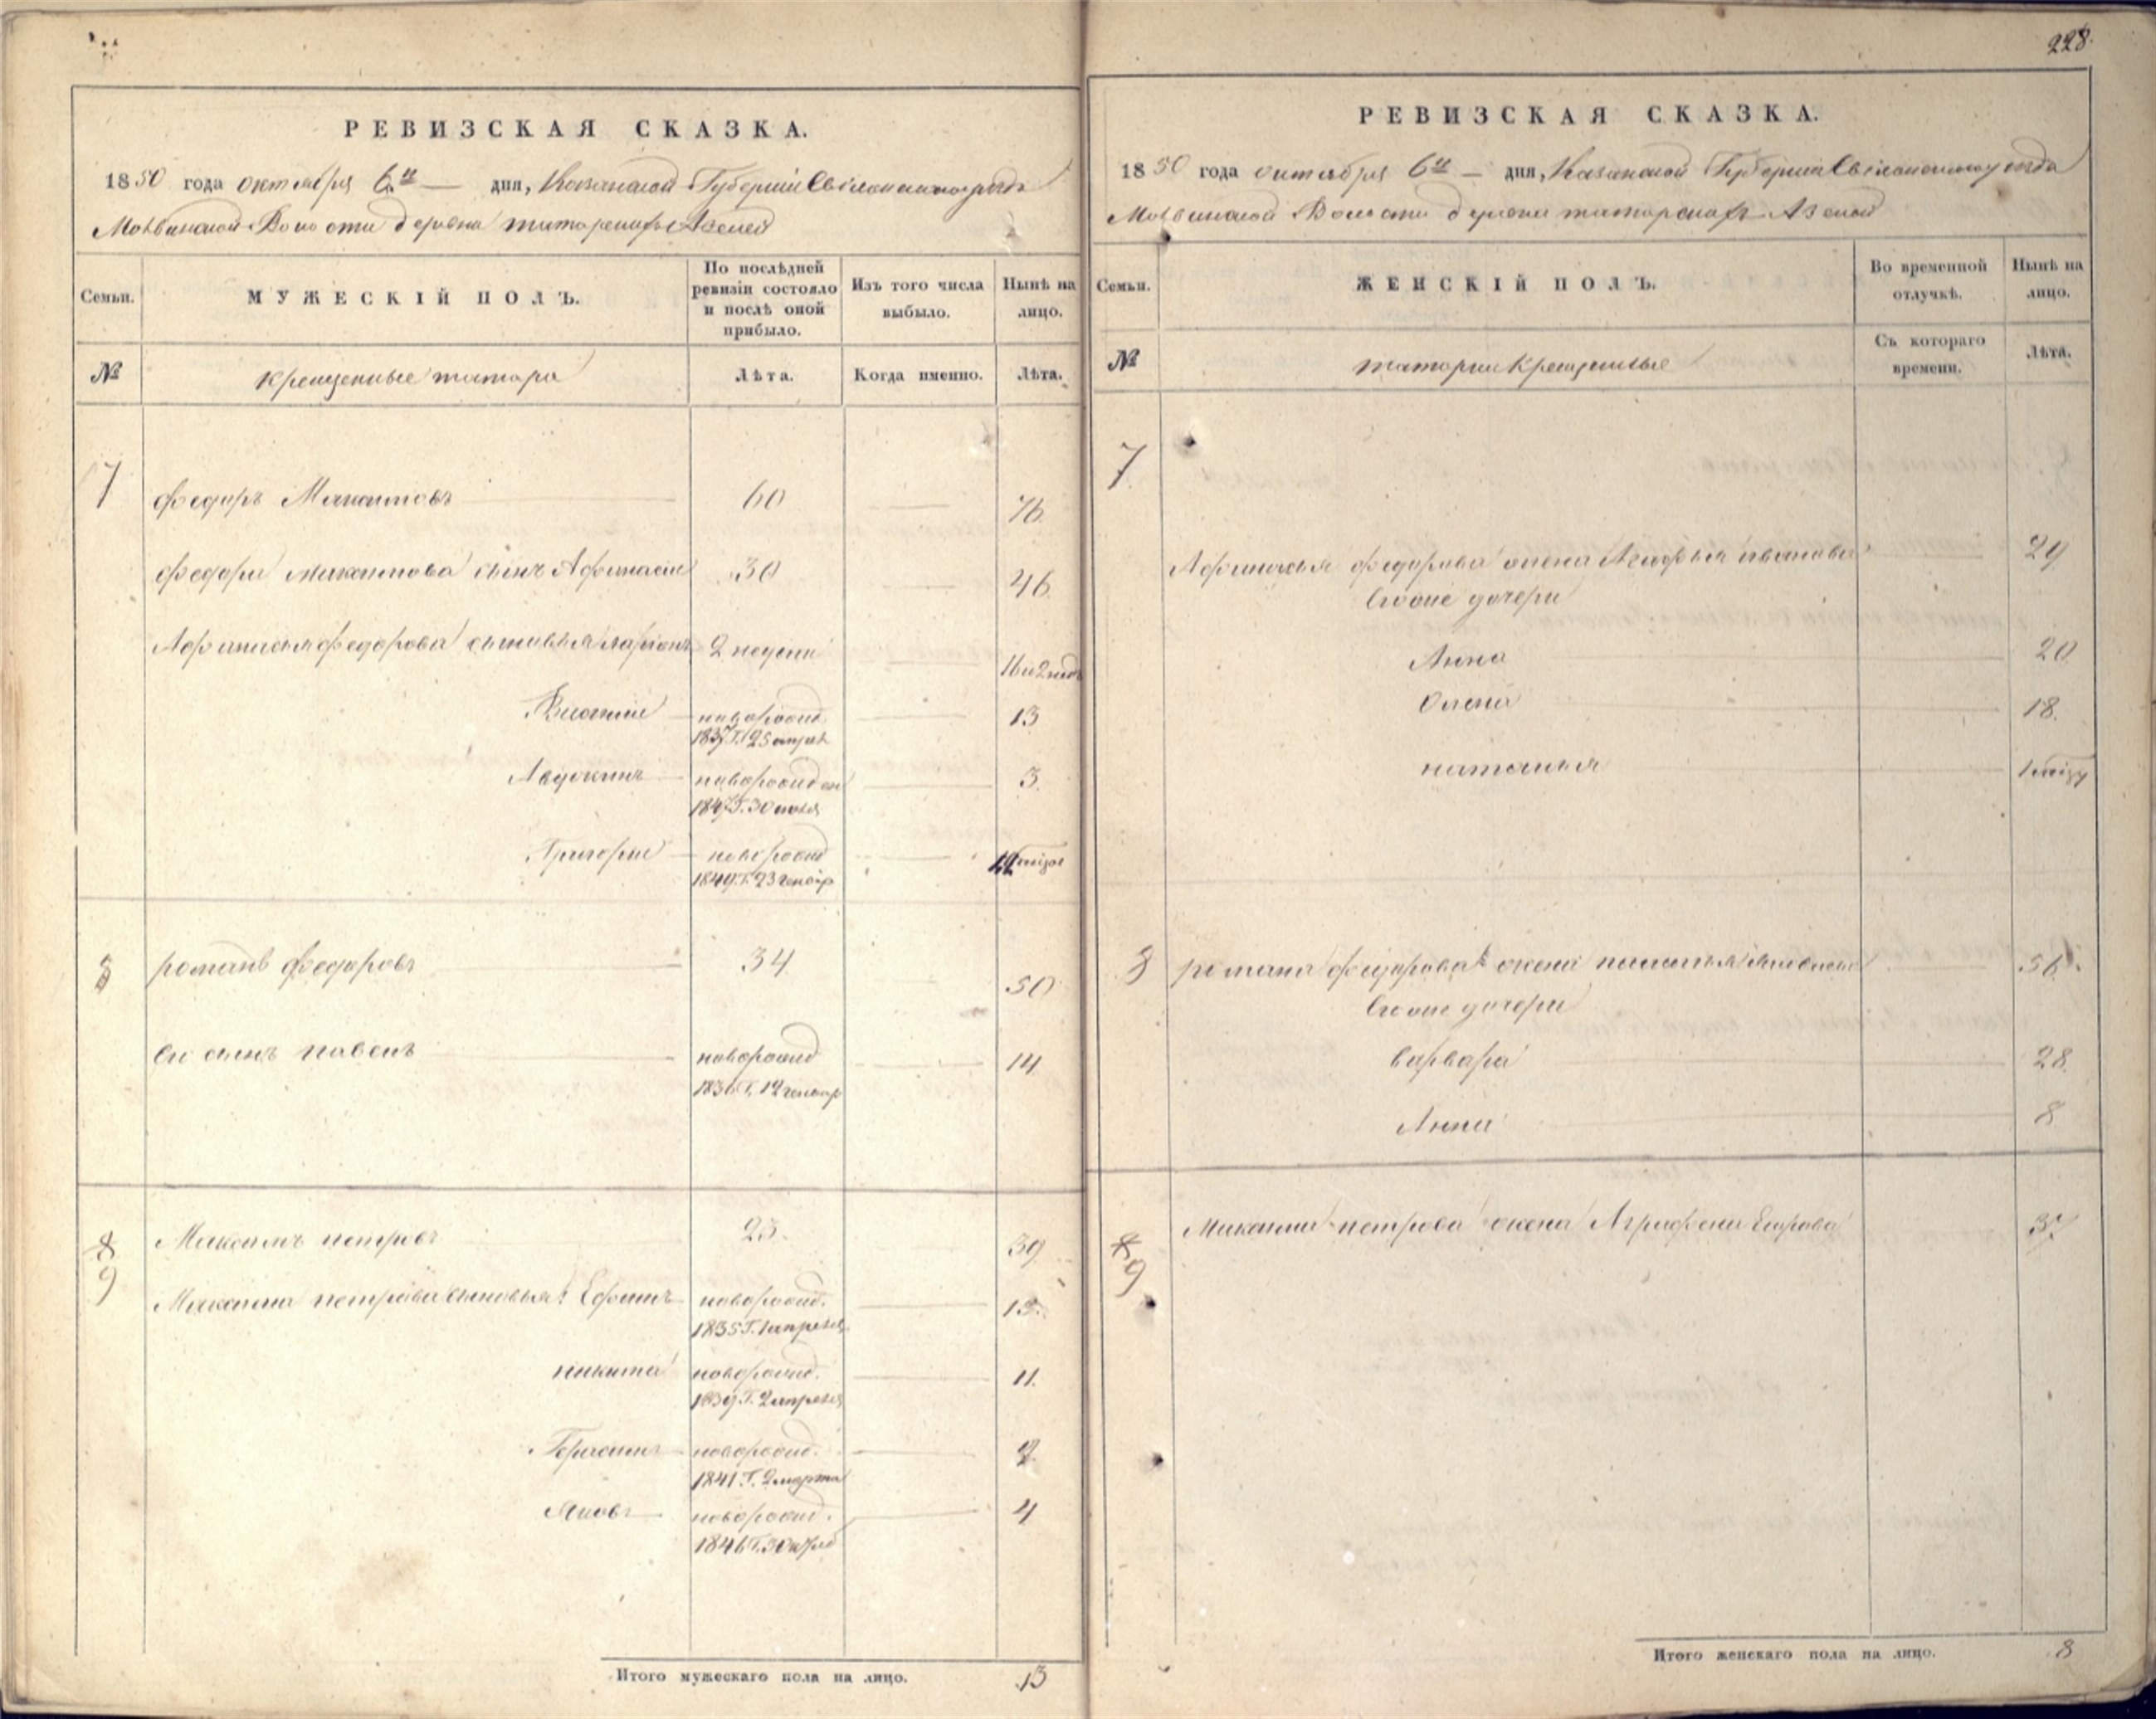 228.
РЕВИЗСКАЯ СКАЗКА.
1850 года октября 6го дня, Казанской Губернии Свіяжскаго уезда
Волости деревни татарских Азелей
Семьи.
МУЖЕСКІЙ ПОЛЪ.
По послѣдней ревизіи состояло и послѣ оной прибыло.
Изъ того числа выбыло.
Нынѣ на лицо.
№
крещенные татара
Лѣта.
Когда именно.
Лѣта.
7
федоръ Максимовъ 60 76
федора максимова сынъ Афонасие 30 46
Афонасья федорова сыновья ларионъ 2 недели 16 и 2 нед
новорожд 13
1837 Г. 25 апреля
новорожден 3.
1847 Г. 30
Григорие новорожд
1849 Г. 23 генвар
8
романъ федоровъ 34 50
ево сынъ павелъ новорожд 14
1836 Г. 12 генвар
8
9
Максимъ петровъ 23. 39
Максима петрова сыновья: Ефимъ новорожд. 15.
1835 Г. 1 апреля
никита новорожд. 11.
1839 Г. 2 апреля
Герасимъ новорожд.
1841 Г. 2 марта
Яковъ новорожд. 4
1846 Г. 30
Итого мужескаго пола на лицо. 13
РЕВИЗСКАЯ СКАЗКА.
1850 года октября 6го дня, Казанской Губернии Свіяжскаго уезда
Волости деревни татарских Азелей
Семьи.
ЖЕНСКІЙ ПОЛЪ.
Во временной отлучкѣ.
Нынѣ на лицо.
№
татарки крещенные
Съ котораго времени.
Лѣта.
7
Афонасья федорова жена Агафья иванова 29
Евоые дочери
Анна 20
Олена 18.
наталья
8
романа федорова жена пелагья 56.
Евоые дочери
варвара 28.
Анна 8
8
9
Максима петрова жена Аграфена Егорова 37
Итого женскаго пола на лицо. 8